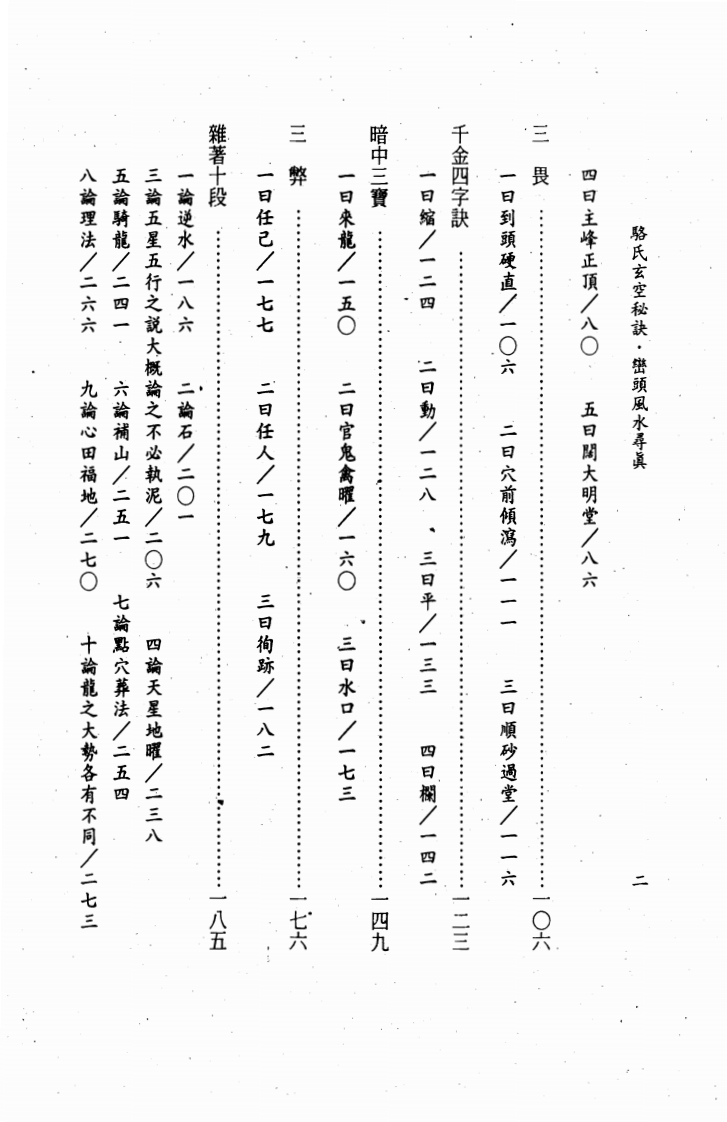 駱氏玄空秘訣·巒頭風水尋眞
二
四曰主峰正頂/八〇 五曰闊大明堂/八六
三畏……一〇六
一曰到頭硬直/一〇六 二曰穴前傾瀉/一一一 三曰順砂過堂/一一六
千金四字訣……一二三
一曰縮/一二四 二曰動/一二八、三曰平/一三三 四曰欄/一四二
暗中三寶……一四九
一曰來龍/一五〇 二曰官鬼禽曜/一六〇 三曰水口/一七三
三弊……一七六
一曰任己/一七七 二曰任人/一七九 三曰徇跡/一八二
雜著十段……一八五
一論逆水/一八六 二論石/二〇一
三論五星五行之説大概論之不必執泥/二〇六 四論天星地曜/二三八
五論騎龍/二四一 六論補山/二五一 七論點穴葬法/二五四
八論理法/二六六 九論心田福地/二七〇 十論龍之大勢各有不同/二七三